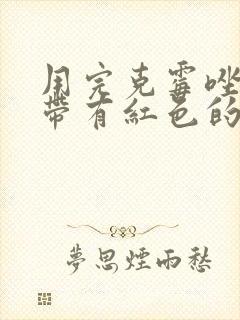 用完克霉唑
带有紅色的
夢思煙雨愁